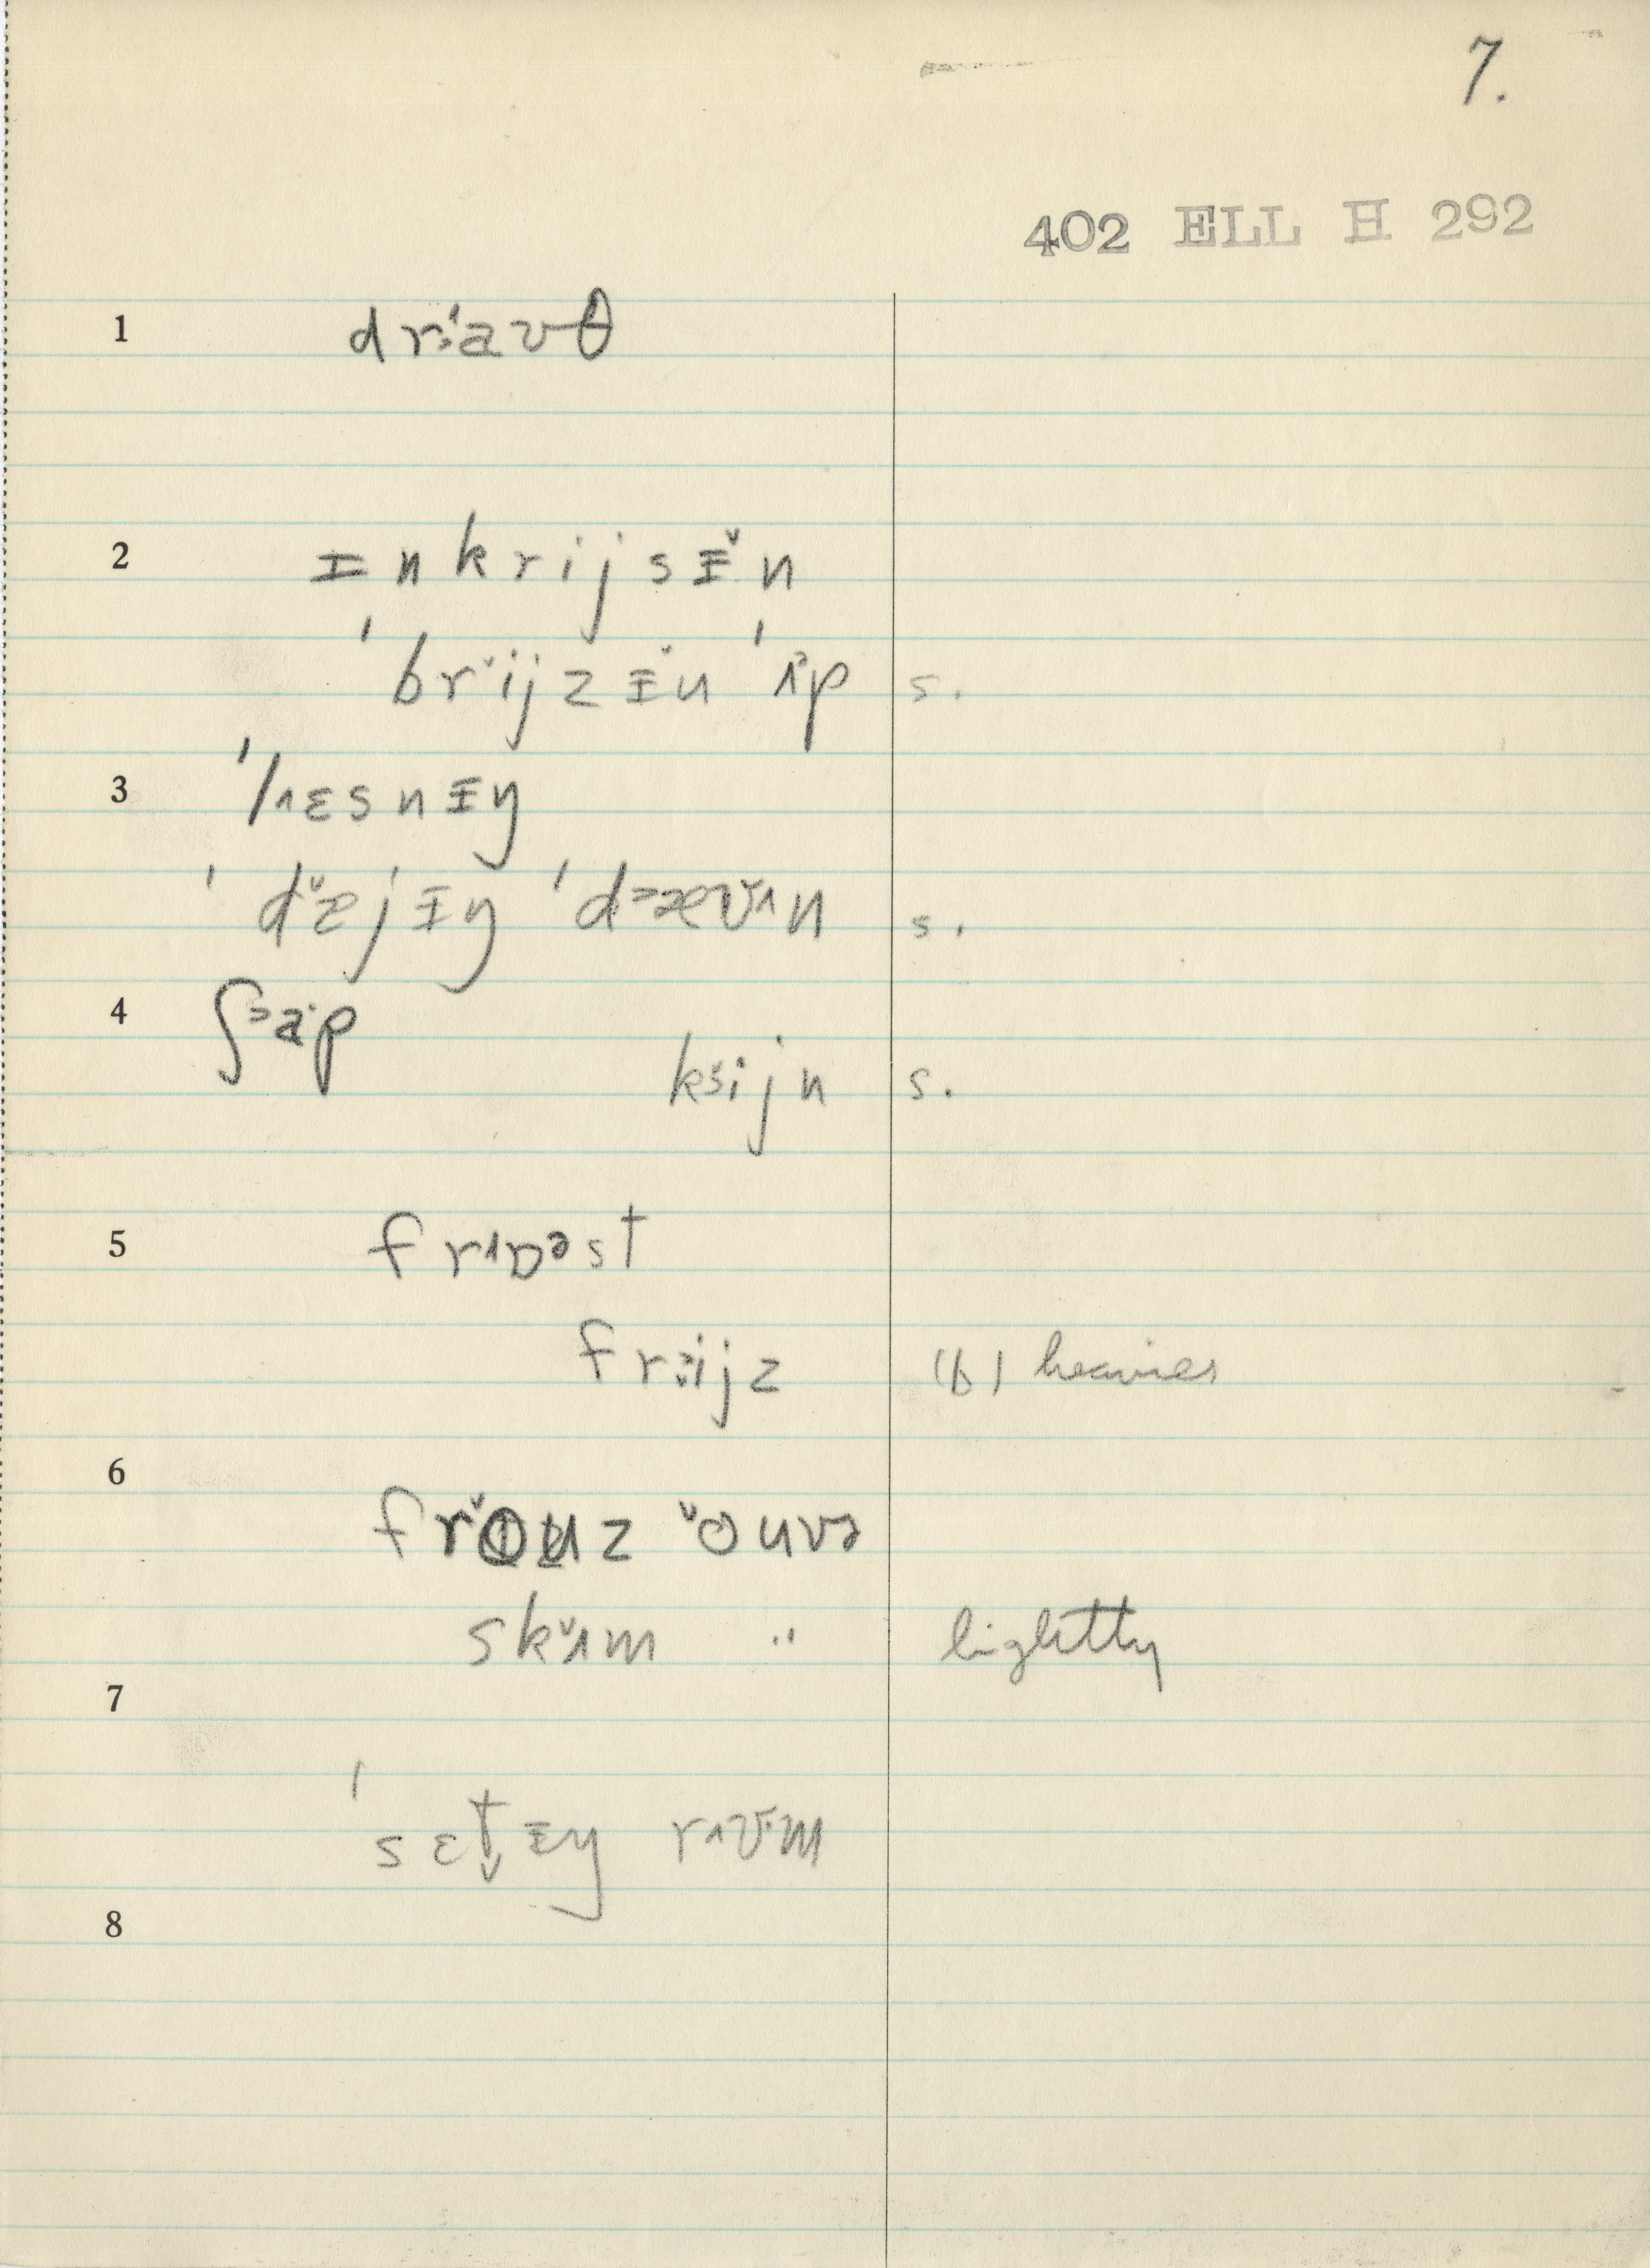 7.
402 ELL H 292
1 drɜ'avθ
2 ɪnkrijsɪ̌n
'brǐjzɪ̌n 'ʌ̌p s.
3 'lʌɛsnɪŋ
'dæ̌jɪŋ 'd>æʊ̌ʌn s.
4 ʃ>aˑp
ksǐjn s.
5 frʌɒəst
frɜijz (b) heavier
6 frǒuz ǒuvə
skɪ̌ʌm " lightly
7
'sɛt̬ɪŋ rʌʊ·m
8